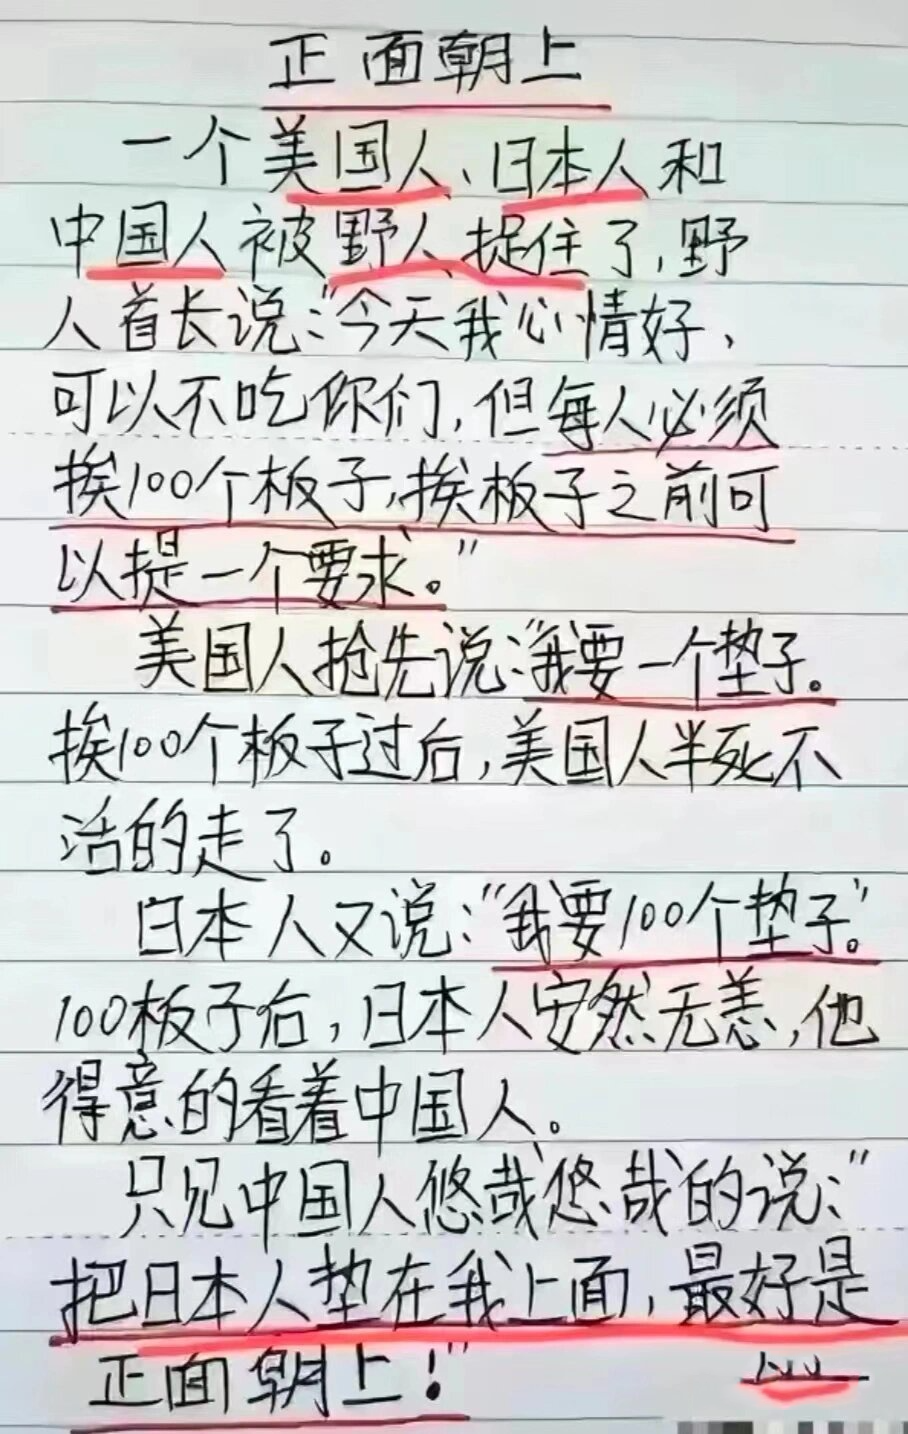 正面朝上
一个美国人、日本人和
中国人被野人捉住了,野
人首长说:"今天我心情好、
可以不吃你们,但每人必须
挨100个板子,挨板子之前可
以提一个要求。"
美国人抢先说:"我要一个垫子。
挨100个板子过后,美国人半死不
活的走了。
日本人又说:"我要100个垫子。"
100板子后,日本人安然无恙,他
得意的看着中国人。
只见中国人悠哉悠哉的说:"
把日本人垫在我上面,最好是
正面朝上!"